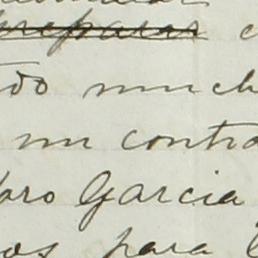 preparar
do much
un contra
aro Garcia
os para